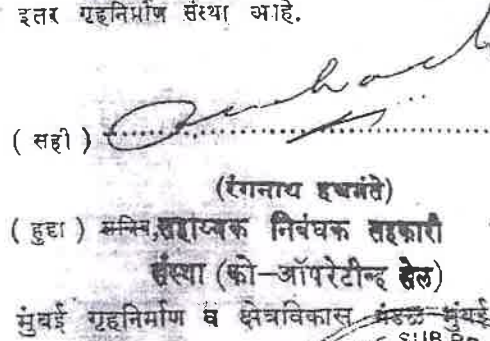 इतर गृहनिर्माण संस्था आहे.
( सही )
(रंगनाथ हथमंते)
( हुद्दा ) सचिव,सहाय्यक निबंधक सहकारी
संस्था (को-ऑपरेटीव्ह सेल)
मुंबई गृहनिर्माण व क्षेत्रविकास मंडळ मुंबई
SUB